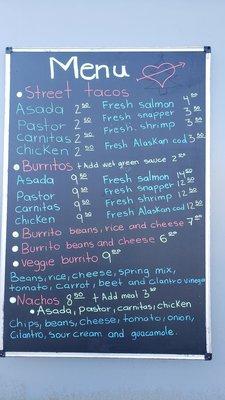 Menu
Street tacos
Asada 2.50 Fresh salmon 4.00
Pastor 2.50 Fresh snapper 3.50
carnitas 2.50 Fresh. shrimp 3.50
chicken 2.50 Fresh Alaskan cod 3.50
Burritos + Add wet green sauce 2.00
Asada 9.50 Fresh salmon 14.50
Pastor 9.50 Fresh snapper 12.50
carnitas 9.50 Fresh shrimp 12.50
chicken 9.50 Fresh Alaskan cod 12.50
Burrito beans, rice and cheese 7.00
Burrito beans and cheese 6.00
veggie burrito 9.00
Beans, rice, cheese, spring mix,
tomato, carrot, beet and cilantro vinega
Nachos 8.50 + Add meat 3.50
Asada, pastor, carnitas, chicken
Chips, beans, cheese, tomato, onion,
Cilantro, sour cream and guacamole.